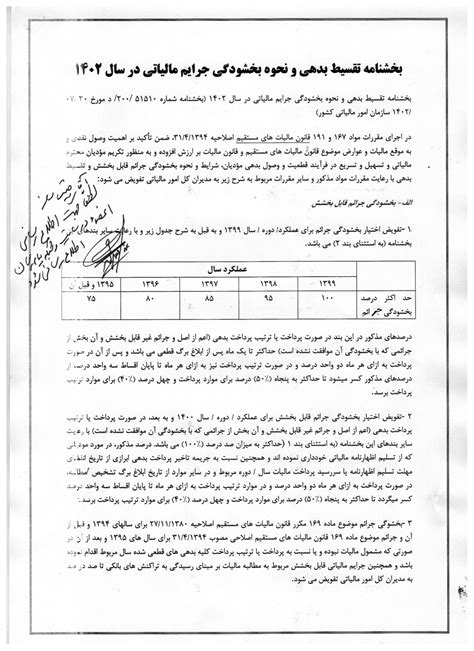 بخشنامه تقسیط بدهی و نحوه بخشودگی جرایم مالیاتی در سال ۱۴۰۲
بخشنامه تقسیط بدهی و نحوه بخشودگی جرایم مالیاتی در سال ۱۴۰۲ (بخشنامه شماره ۵۱۵۱۰ /۲۰۰/ د مورخ ۳۰ /۰۷
/۱۴۰۲ سازمان امور مالیاتی کشور)
در اجرای مقررات مواد ۱۶۷ و ۱۹۱ قانون مالیات های مستقیم اصلاحیه ۳۱/۴/۱۳۹۴، ضمن تأکید بر اهمیت وصول نقدی و
به موقع مالیات و عوارض موضوع قانون مالیات های مستقیم و قانون مالیات بر ارزش افزوده و به منظور تکریم مؤدیان محترم
مالیاتی و تسهیل و تسریع در فرآیند قطعیت و وصول بدهی مؤدیان، شرایط و نحوه بخشودگی جرائم قابل بخشش و تقسیط
بدهی با رعایت مقررات مواد مذکور و سایر مقررات مربوط به شرح زیر به مدیران کل امور مالیاتی تفویض می شود:
الف- بخشودگی جرائم قابل بخشش
۱ -تفویض اختیار بخشودگی جرائم برای عملکرد/ دوره / سال ۱۳۹۹ و قبل به شرح جدول زیر و با رعایت سایر بندهای
(به استثنای بند ۲) می باشد.
عملکرد سال
۱۳۹۹ ۱۳۹۸ ۱۳۹۷ ۱۳۹۶ ۱۳۹۵ و قبل آن
حد اکثر درصد بخشودگی جرائم ۱۰۰ ۹۵ ۸۵ ۸۰ ۷۵
درصدهای مذکور در این بند در صورت پرداخت یا ترتیب پرداخت بدهی (اعم از اصل و جرائم غیر قابل بخشش و آن بخش از
جرائمی که با بخشودگی آن موافقت نشده است) حداکثر تا یک ماه پس از ابلاغ برگ قطعی می باشد و پس از آن در صورت
پرداخت به ازای هر ماه دو واحد درصد و در صورت ترتیب پرداخت نیز به ازای هر ماه تا پایان اقساط سه واحد درصد، از
درصدهای مذکور کسر میشود تا حداکثر به پنجاه (۵۰٪) درصد برای موارد پرداخت و چهل درصد (۴۰٪) برای موارد ترتیب
پرداخت برسد.
۲ -تفویض اختیار بخشودگی جرائم قابل بخشش برای عملکرد / دوره / سال ۱۴۰۰ و به بعد، در صورت پرداخت یا ترتیب
پرداخت بدهی (اعم از اصل و جرائم غیر قابل بخشش و آن بخش از جرائمی که با بخشودگی آن موافقت نشده است) با رعایت
سایر بندهای این بخشنامه (به استثنای بند ۱) حداکثر به میزان صد درصد (۱۰۰٪) می باشد. درصد مذکور، در مورد مؤدیانی
که از تسلیم اظهارنامه مالیاتی خودداری نموده اند و همچنین نسبت به جریمه تاخیر پرداخت بدهی ابرازی از تاریخ انقضای
مهلت تسلیم اظهارنامه یا سررسید پرداخت مالیات سال / دوره مربوط و در سایر موارد از تاریخ ابلاغ برگ تشخیص /مطالبه،
در صورت پرداخت به ازای هر ماه دو واحد درصد و در صورت ترتیب پرداخت به ازای هر ماه تا پایان اقساط سه واحد درصد،
کسر میگردد تا حداکثر به پنجاه (۵۰٪) درصد برای موارد پرداخت و چهل درصد (۴۰٪) برای موارد ترتیب پرداخت برسد.
۳ -بخشودگی جرائم موضوع ماده ۱۶۹ مکرر قانون مالیات های مستقیم اصلاحیه ۲۷/۱۱/۱۳۸۰ برای سالهای ۱۳۹۴ و قبل
آن و جرائم موضوع ماده ۱۶۹ قانون مالیات های مستقیم اصلاحی مصوب ۳۱/۴/۱۳۹۴ برای سال های ۱۳۹۵ و بعد از آن در
صورتی که مشمول مالیات نبوده و یا نسبت به پرداخت یا ترتیب پرداخت کلیه بدهی های قطعی شده سال مربوط اقدام نموده
باشد و همچنین جرائم مالیاتی قابل بخشش مربوط به مطالبه مالیات بر مبنای رسیدگی به تراکنش های بانکی تا صد در صد
به مدیران کل امور مالیاتی تفویض می شود.